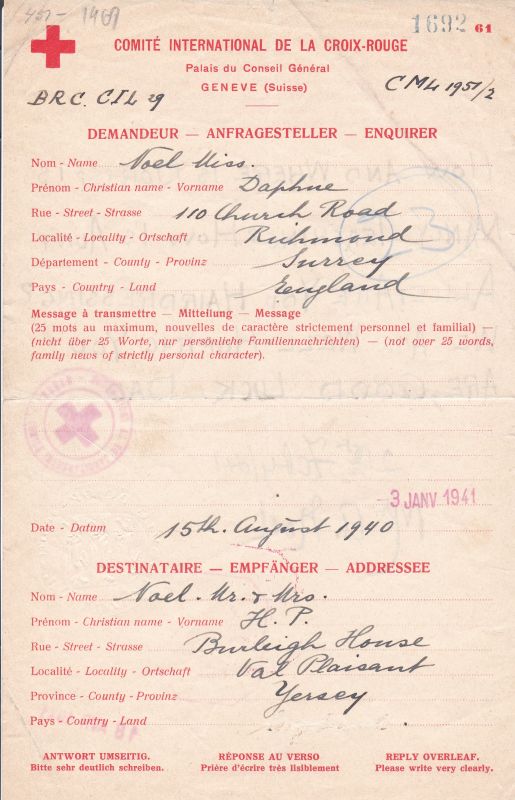 1692 61
COMITÉ INTERNATIONAL DE LA CROIX-ROUGE
Palais du Conseil Général
GENEVE (Suisse)
B.R.C. C.I.L. 29
CML 1951/2
DEMANDEUR — ANFRAGESTELLER — ENQUIRER
Nom - Name Noel Miss.
Prénom - Christian name - Vorname Daphne
Rue - Street - Strasse 110 Church Road
Localité - Locality - Ortschaft Richmond
Département - County - Provinz Surrey
Pays - Country - Land England
Message à transmettre — Mitteilung — Message
(25 mots au maximum, nouvelles de caractère strictement personnel et familial) —
(nicht über 25 Worte, nur persönliche Familiennachrichten) — (not over 25 words,
family news of strictly personal character).
3 JANV 1941
Date - Datum 15th. August 1940
DESTINATAIRE — EMPFÄNGER — ADDRESSEE
Nom - Name Noel. Mr. & Mrs.
Prénom - Christian name - Vorname H. P.
Rue - Street - Strasse Burleigh House
Localité - Locality - Ortschaft Val Plaisant
Province - County - Provinz Yersey
Pays - Country - Land
ANTWORT UMSEITIG. RÉPONSE AU VERSO REPLY OVERLEAF.
Bitte sehr deutlich schreiben. Prière d'écrire très lisiblement Please write very clearly.